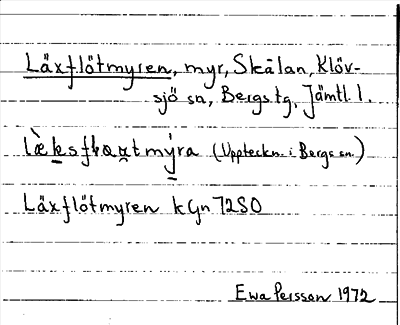 Läxflötmyren, myr, Skålan, Klöv-
sjö sn, Bergs tg, Jämtl. l.
(Uppteckn. i Bergs sn.)
Läxflötmyren kGn 72SO
Ewa Persson 1972